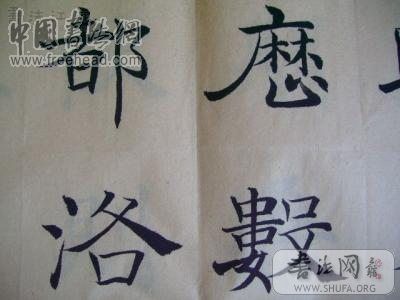 中国书法网
www.freehead.com
歷數
都洛
书法网
WWW.SHUFA.ORG